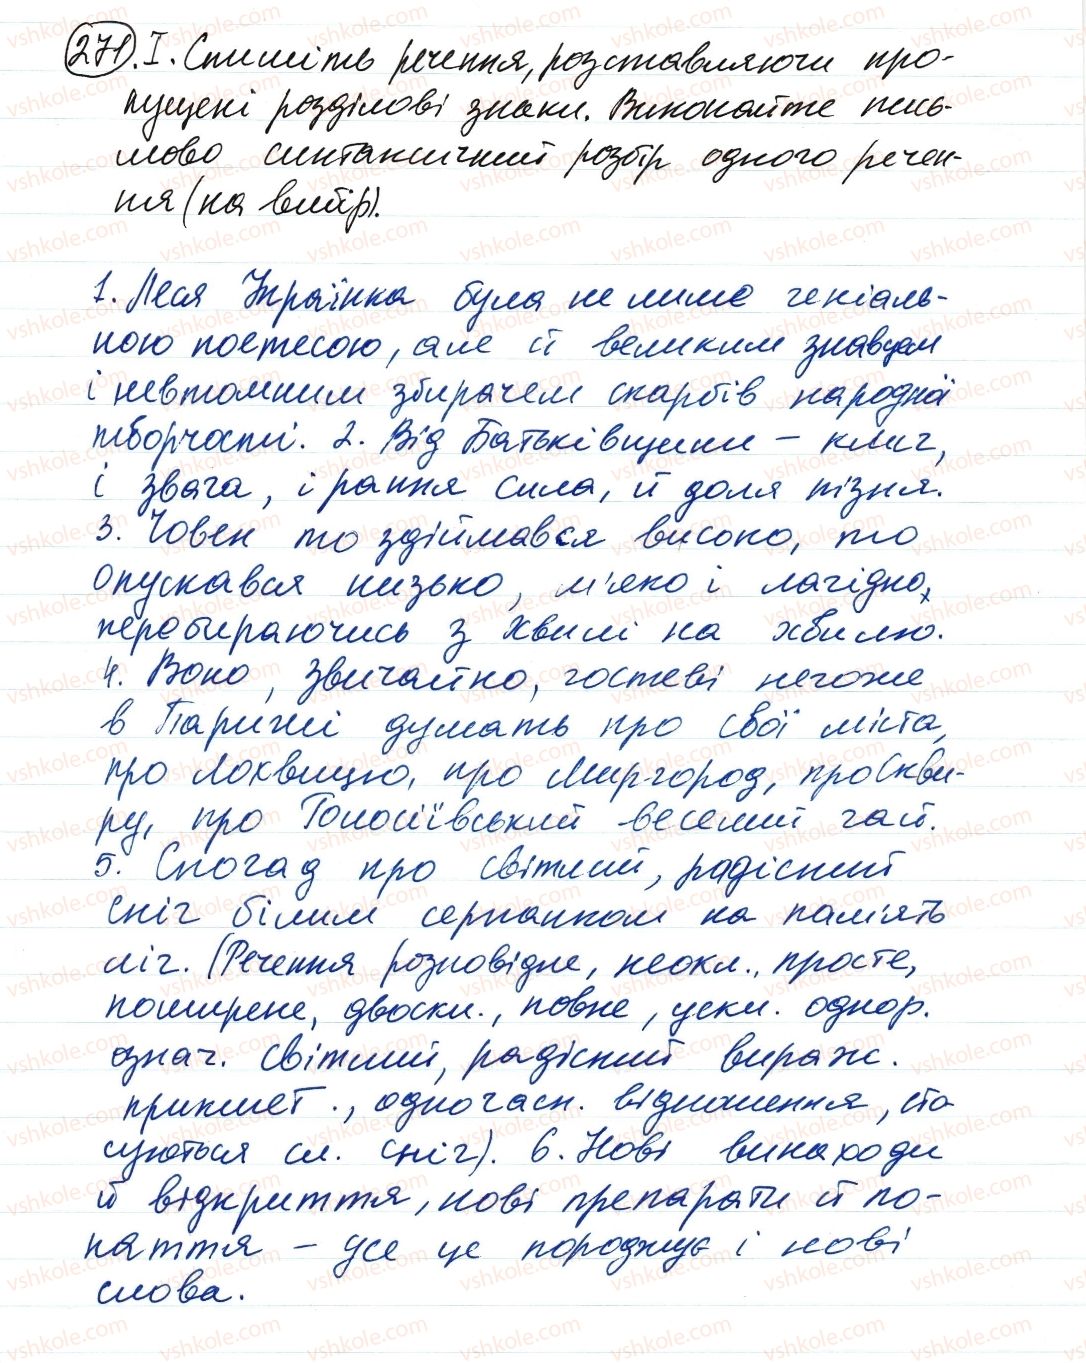 271. I. Спишіть речення, розставляючи про-
пущені розділові знаки. Виконайте пись-
мово синтаксичний розбір одного речен-
ня (на вибір).
1. Леся Українка була не лише геніаль-
ною поетесою, але й великим знавцем
і невтомним збирачем скарбів народної
творчості. 2. Від Батьківщини – клич,
і звага, і рання сила, й доля пізня.
3. Човен то здіймався високо, то
опускався низько, м'яко і лагідно
перебираючись з хвилі на хвилю.
4. Воно, звичайно, гостеві негоже
в Парижі думать про свої міста,
про Лохвицю, про Миргород, про Скви-
ру, про Голосіївський веселий гай.
5. Спогад про світлий, радісний
сніг білим серпанком на пам'ять
ліг. (Речення розповідне, неокл., просте,
поширене, двоскл., повне, ускл. однор.
означ. світлий, радісний вираж.
прикмет., одночасн. відношення, сто
суються сл. сніг). 6. Нові винаходи
й відкриття, нові препарати й по-
няття – усе це породжує і нові
слова.